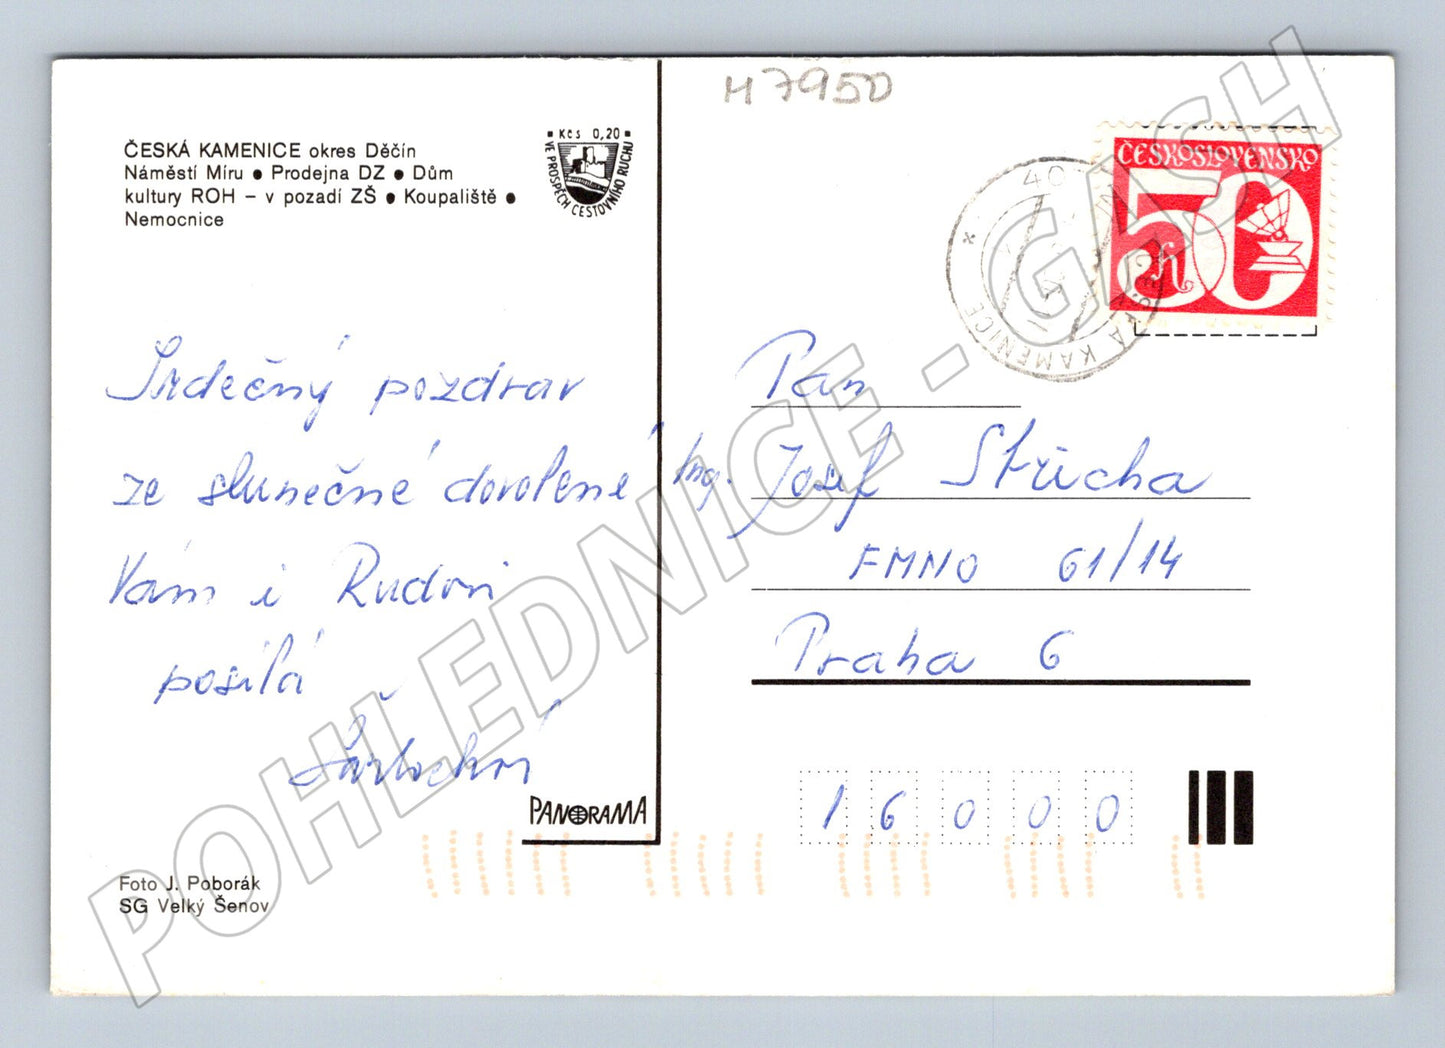 H7950
ČESKÁ KAMENICE okres Děčín
Náměstí Míru ● Prodejna DZ ● Dům
kultury ROH – v pozadí ZŠ ● Koupaliště ●
Nemocnice
Kčs 0,20
VE PROSPĚCH CESTOVNÍHO RUCHU
ČESKOSLOVENSKO
50
h
ČESKÁ KAMENICE
Srdečný pozdrav
ze slunečné dovolené
Vám i Rudovi
posílá
Pan
Ing. Josef Střícha
FMNO 61/14
Praha 6
16000
PANORAMA
Foto J. Poborák
SG Velký Šenov
POHLEDNICE - GASH